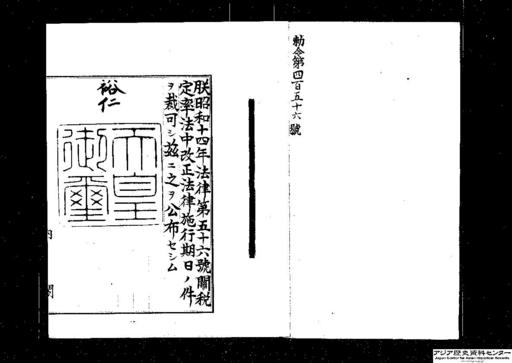 勅令第四百五十六號
朕昭和十四年法律第五十六號關税
定率法中改正法律施行期日ノ件
ヲ裁可シ茲ニ之ヲ公布セシム
裕仁
天皇
御璽
内閣
アジア歴史資料センター
Japan Center for Asian Historical Records